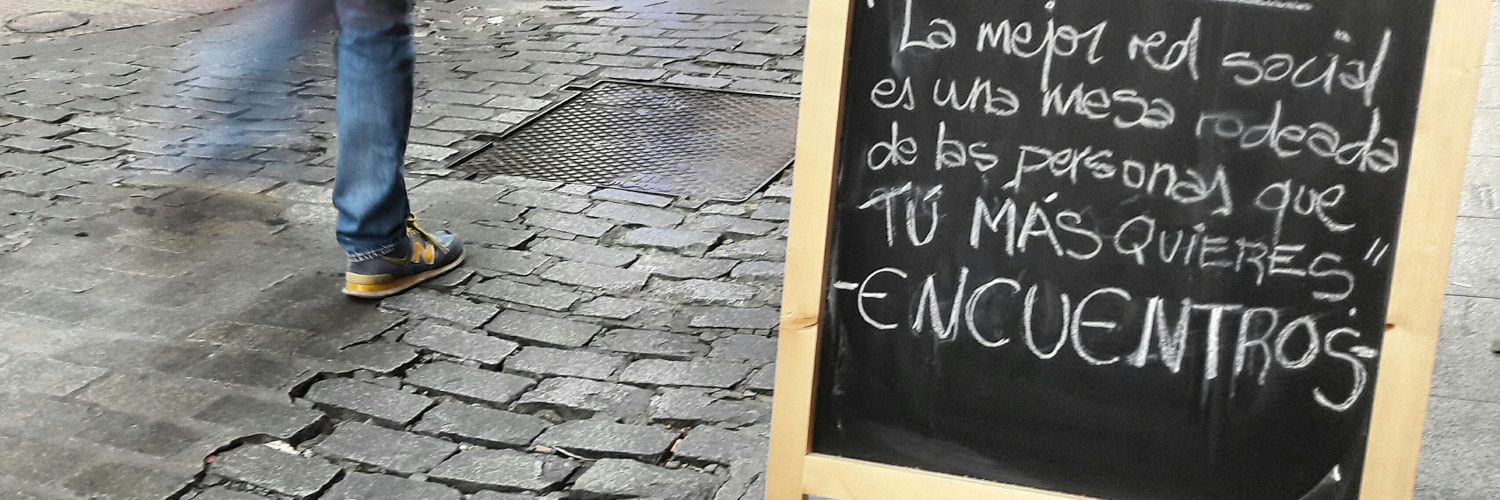 "La mejor red social
es una mesa rodeada
de las personas que
TÚ MÁS QUIERES"
-ENCUENTROS-